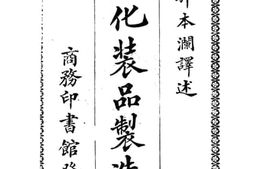 本瀾譯述
化裝品製造
商務印書館發